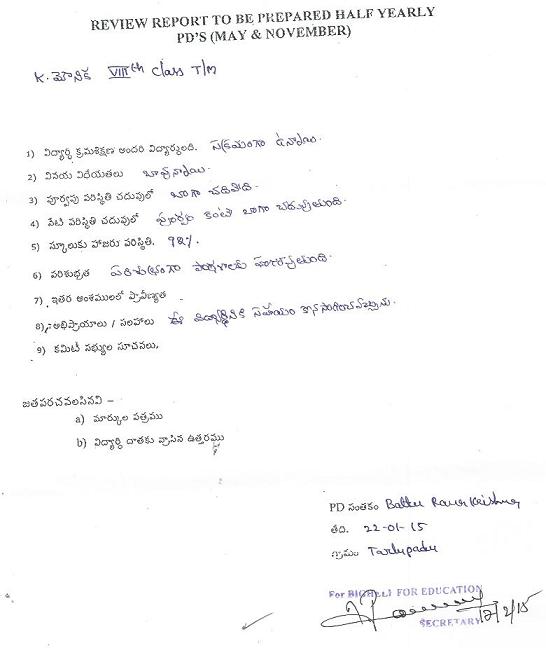 REVIEW REPORT TO BE PREPARED HALF YEARLY
PD'S (MAY & NOVEMBER)
K. మౌనిక VIIIth class T/M
1) విద్యార్థి క్రమశిక్షణ అందరి విద్యార్థులది. సక్రమంగా ఉన్నాయి.
2) వినయ విధేయతలు బావున్నాయి.
3) పూర్వపు పరిస్థితి చదువులో బాగా చదివేది.
4) నేటి పరిస్థితి చదువులో పూర్వం కంటే బాగా చదువుతుంది.
5) స్కూలుకు హాజరు పరిస్థితి. 98%.
6) పరిశుభ్రత పరిశుభ్రంగా పాఠశాలకు హాజరవుతుంది.
7) ఇతర అంశములలో ప్రావీణ్యత
8) అభిప్రాయాలు / సలహాలు ఈ విద్యార్థినికి సహాయం
9) కమిటీ సభ్యుల సూచనలు.
జతపరచవలసినవి –
a) మార్కుల పత్రము
b) విద్యార్థి దాతకు వ్రాసిన ఉత్తరము
PD సంతకం Battu Rama Krishna
తేది. 22-01-15
గ్రామం Tarlupadu
For BIGHELP FOR EDUCATION
SECRETARY 12/2/15